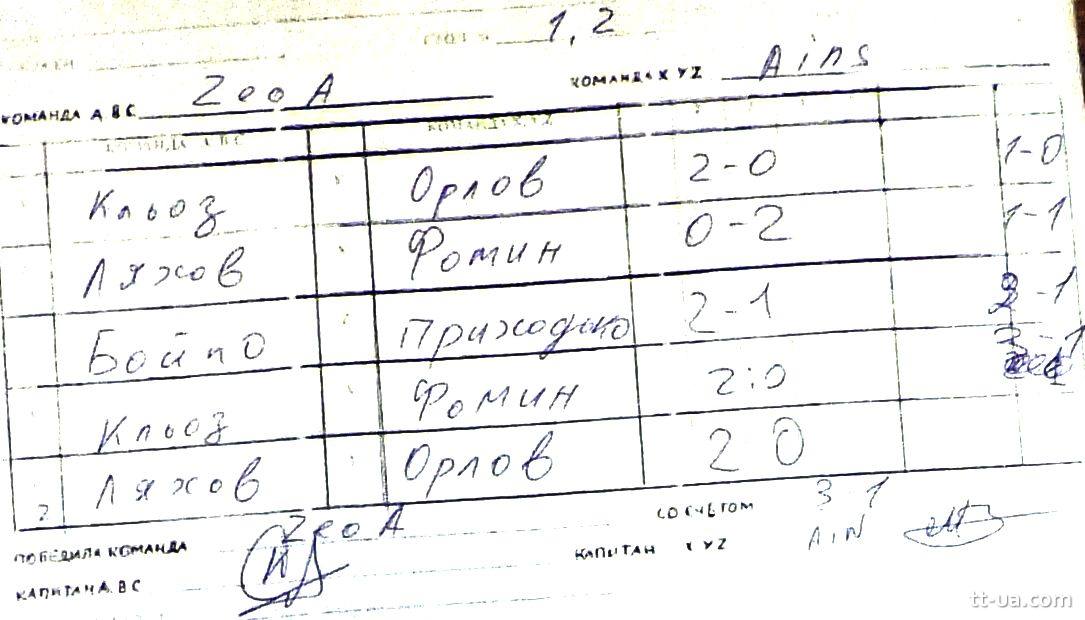 1,2
КОМАНДА А, В С Zeo A КОМАНДА X Y Z Ains
КОМАНДА А, В С КОМАНДА X, Y, Z
Кльоз Орлов 2-0 1-0
Ляхов Фомин 0-2 1-1
Бойко Приходько 2-1 2-1
Кльоз Фомин 2:0
Ляхов Орлов 2 0
ПОБЕДИЛА КОМАНДА Zeo A СО СЧЕТОМ 3-1
КАПИТАН А, В С КАПИТАН X Y Z AiN
tt-ua.com